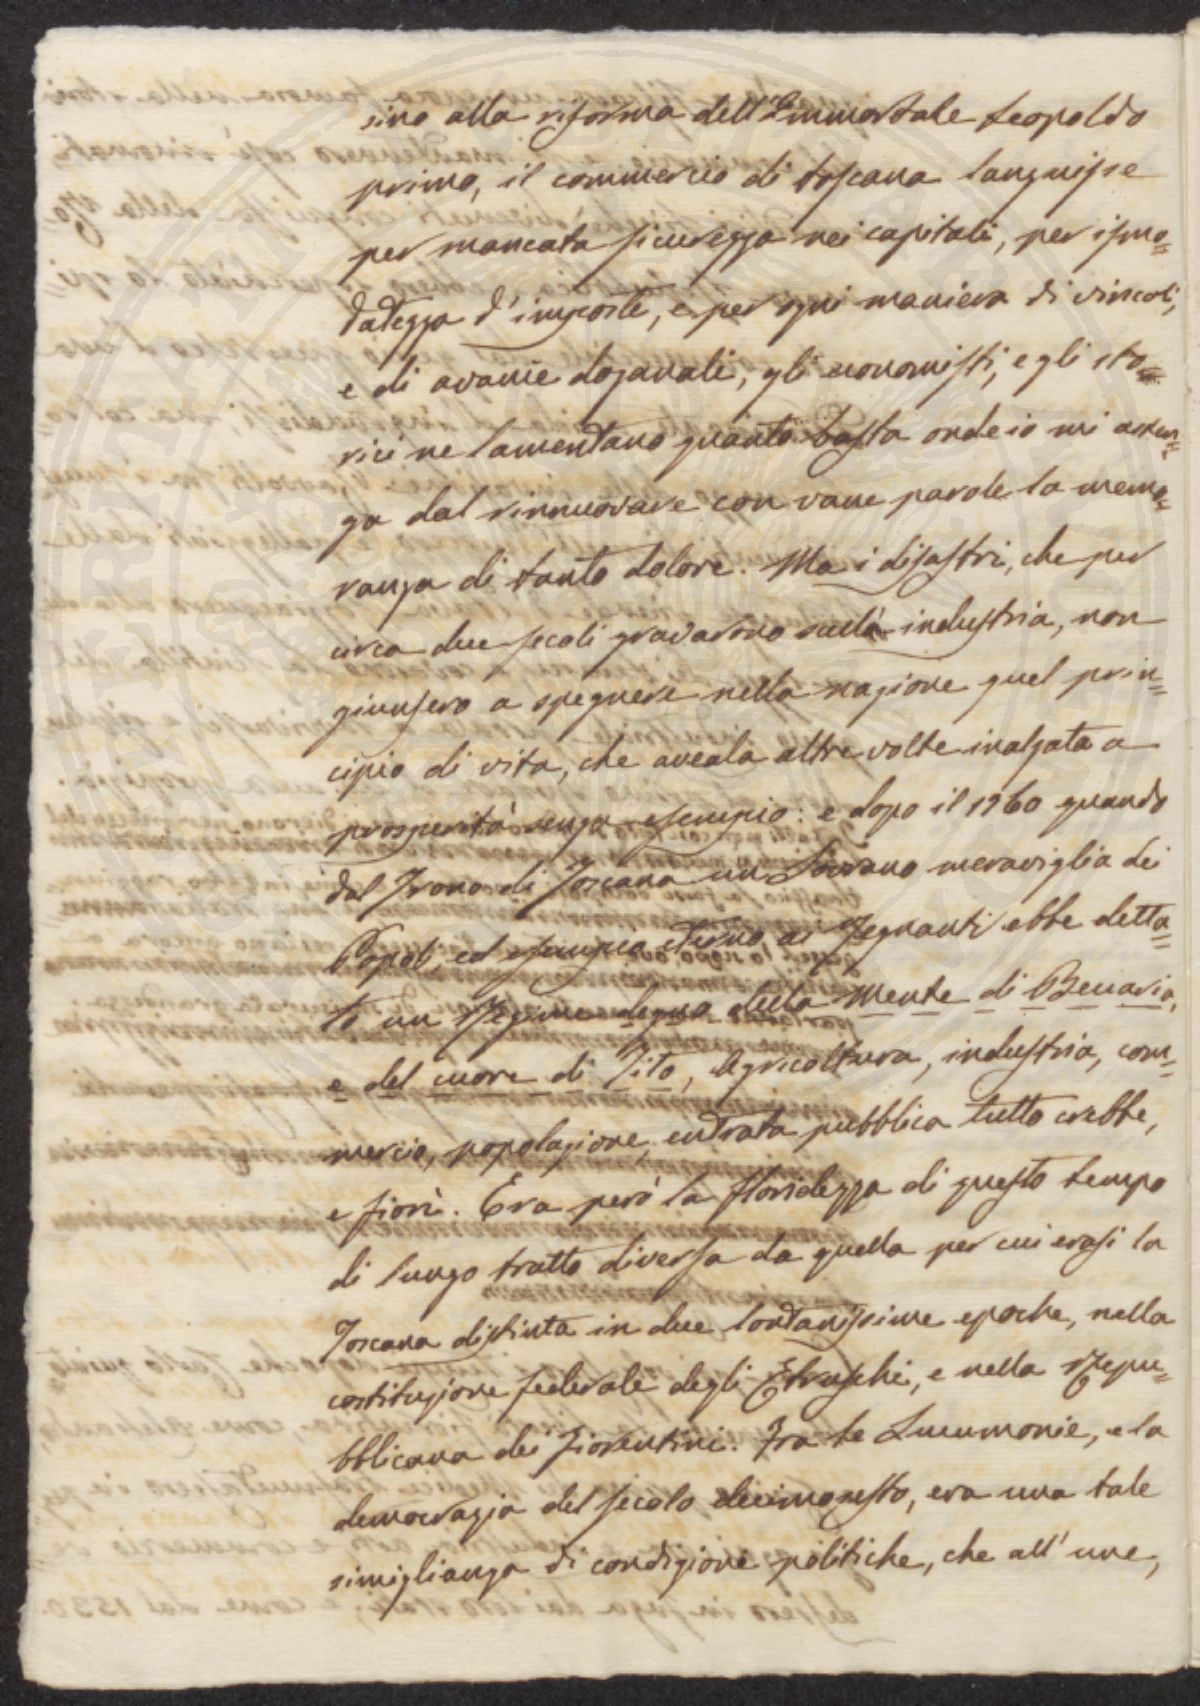 sino alla riforma dell'Immortale Leopoldo
primo, il commercio di toscana languisse
per mancata sicurezza nei capitali, per ismo=
datezza d'imposte, e per ogni maniera di vincoli,
e di avanie doganali, gli economisti, e gli sto=
rici ne lamentano quanto basta onde io mi asten=
ga dal rinnuovare con vane parole la memo=
ranza di tanto dolore. Ma i disastri, che per
circa due secoli gravarono sulla industria, non
giunsero a spegnere nella nazione quel prin=
cipio di vita, che aveala altre volte inalzata a
prosperità senza esempio: e dopo il 1760 quando
dal Trono di Toscana un Sovrano meraviglia dei
Popoli, ed esempio eterno ai Regnanti ebbe detta=
to un Regime degno della mente di Beccaria,
e del cuore di Tito, Agricoltura, industria, com=
mercio, popolazione, entrata pubblica tutto crebbe,
e fiorì. Era però la floridezza di questo tempo
di lungo tratto diversa da quella per cui erasi la
Toscana distinta in due lontanissime epoche, nella
costituzione federale degli Etruschi, e nella Repu=
bblicana dei Fiorentini. Fra le Lucumonie, e la
democrazia del secolo decimosesto, era una tale
simiglianza di condizione politiche, che all'une,